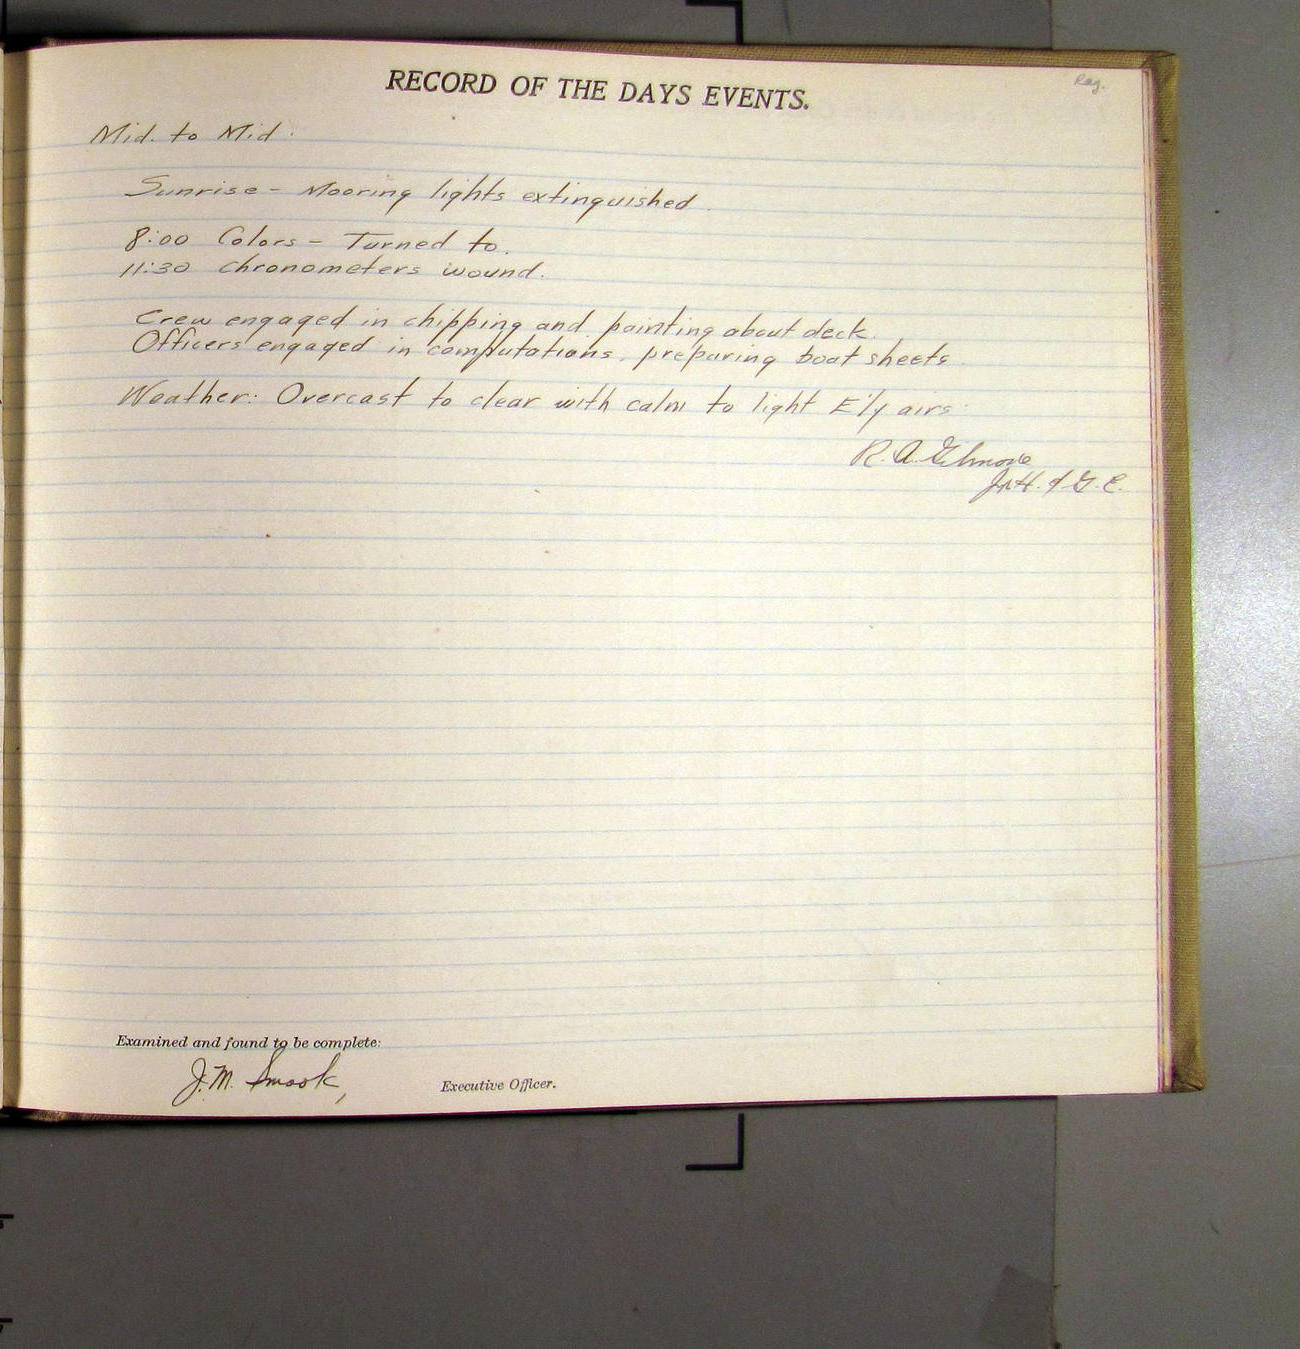 RECORD OF THE DAYS EVENTS.
Rag.
Mid. to Mid.
Sunrise - Mooring lights extinguished.
8:00 Colors - Turned to.
11:30 Chronometers wound.
Crew engaged in chipping and painting about deck.
Officers engaged in computations, preparing boat sheets.
Weather: Overcast to clear with calm to light E'ly airs.
R. A. Gilmore
Jr. H. & G. E.
Examined and found to be complete:
J. M. Smook,
Executive Officer.